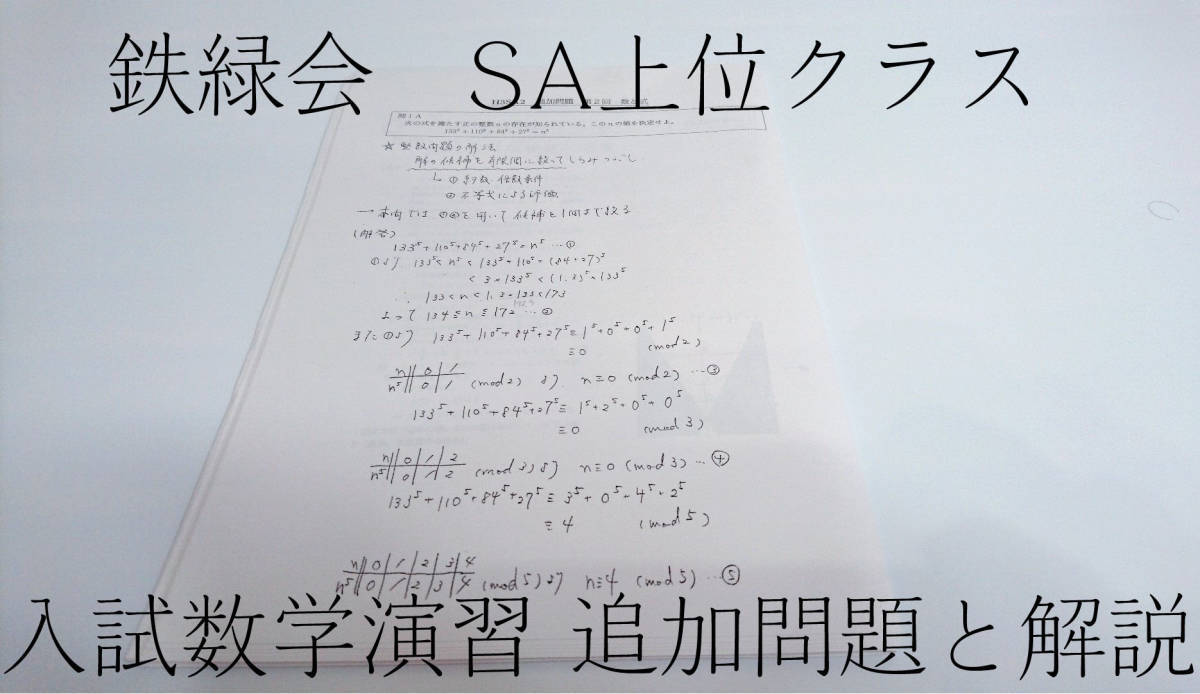 鉄緑会 SA上位クラス
追加問題 第2回 数と式
問1A
次の式を満たす正の整数nの存在が知られている。このnの値を決定せよ。
133⁵+110⁵+84⁵+27⁵=n⁵
☆整数問題の解法
解の候補を有限個に絞ってしらみつぶし
① 約数・倍数条件
② 不等式による評価
→本問では①②を用いて候補を1個まで絞る
(解答)
133⁵+110⁵+84⁵+27⁵=n⁵…①
①より 133⁵<n⁵<133⁵+110⁵+(84+27)⁵
<3×133⁵<(1.3)⁵×133⁵
∴ 133<n<1.3×133<173
よって 134≦n≦172…②
また①より 133⁵+110⁵+84⁵+27⁵≡1⁵+0⁵+0⁵+1⁵
≡0 (mod2)
n 0 1
n⁵ 0 1 (mod2) より n≡0 (mod2)…③
133⁵+110⁵+84⁵+27⁵≡1⁵+2⁵+0⁵+0⁵
≡0 (mod3)
n 0 1 2
n⁵ 0 1 2 (mod3)より n≡0 (mod3)…④
133⁵+110⁵+84⁵+27⁵≡3⁵+0⁵+4⁵+2⁵
≡4 (mod5)
n 0 1 2 3 4
n⁵ 0 1 2 3 4 (mod5)より n≡4 (mod5)…⑤
入試数学演習 追加問題と解説